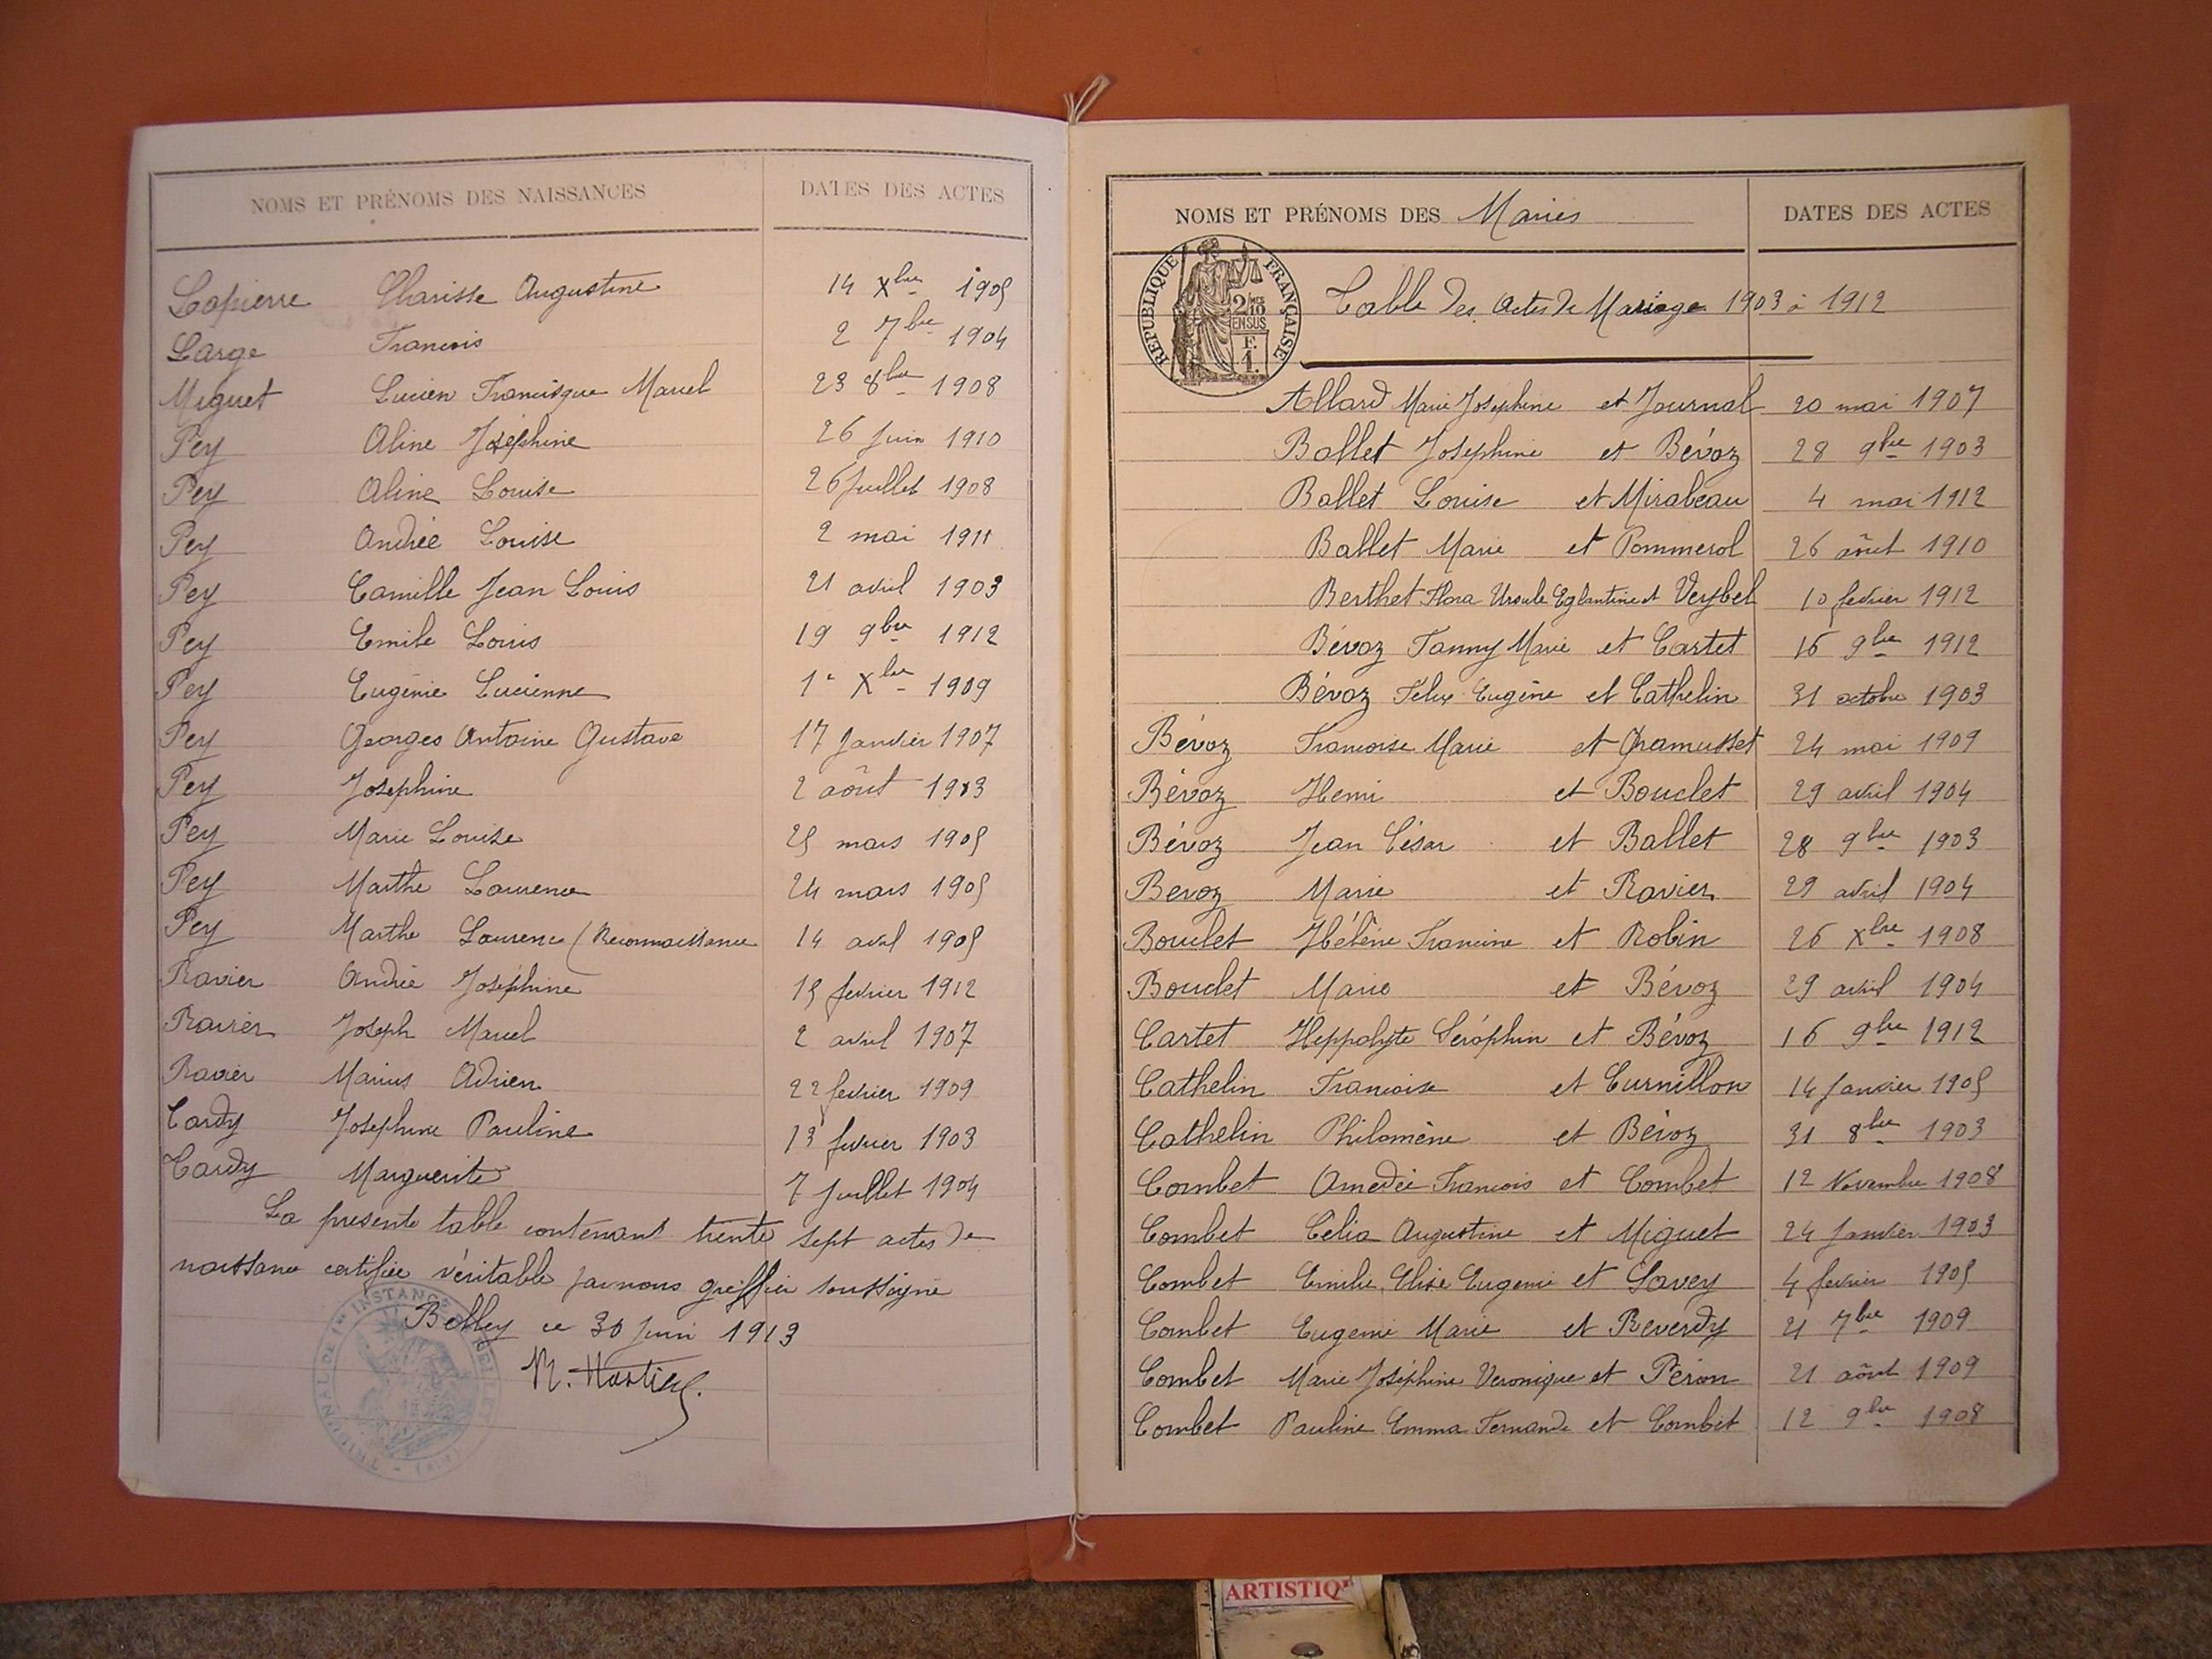 NOMS ET PRÉNOMS DES NAISSANCES DATES DES ACTES
Lapierre Clarisse Augustine 14 Xbre 1905
Large Francois 2 7bre 1904
Miguet Lucien Francisque Marcel 23 8bre 1908
Pey Aline Joséphine 26 Juin 1910
Pey Aline Louise 26 Juillet 1908
Pey Andrée Louise 2 mai 1911
Pey Camille Jean Louis 21 avril 1903
Pey Emile Louis 19 9bre 1912
Pey Eugénie Lucienne 1e Xbre 1909
Pey Georges Antoine Gustave 17 Janvier 1907
Pey Josephine 2 août 1903
Pey Marie Louise 25 mars 1905
Pey Marthe Laurence 24 mars 1905
Pey Marthe Laurence (Reconnaissance 14 avril 1905
Ravier Andrée Joséphine 15 fevrier 1912
Ravier Joseph Marcel 2 avril 1907
Ravier Marius Adrien 22 fevrier 1909
Tardy Josephine Pauline 13 fevrier 1903
Tardy Marguerite 7 Juillet 1904
La presente table contenant trente sept actes de
naissance certifiée véritable par nous greffier soussigné
Belley ce 30 Juin 1913
TRIBUNAL DE 1ère INSTANCE
NOMS ET PRÉNOMS DES Mariés DATES DES ACTES
RÉPUBLIQUE FRANÇAISE
2/10 EN SUS
F. 1.
Table des Actes de Mariage 1903 à 1912
Allard Marie Josephine et Journal 20 mai 1907
Ballet Josephine et Bévoz 28 9bre 1903
Ballet Louise et Mirabeau 4 mai 1912
Ballet Marie et Pommerol 26 août 1910
Berthet Flora Ursule Eglantine et Veybel 10 fevrier 1912
Bévoz Fanny Marie et Cartet 16 9bre 1912
Bévoz Felix Eugène et Cathelin 31 octobre 1903
Bévoz Francoise Marie et Gramusset 24 mai 1909
Bévoz Henri et Bouclet 29 avril 1904
Bévoz Jean César et Ballet 28 9bre 1903
Bevoz Marie et Ravier 29 avril 1904
Bouclet Hélène Francine et Robin 26 Xbre 1908
Bouclet Marie et Bévoz 29 avril 1904
Cartet Hippolyte Séraphin et Bévoz 16 9bre 1912
Cathelin Francoise et Curnillon 14 Janvier 1905
Cathelin Philomène et Bévoz 31 8bre 1903
Combet Amedée Francois et Combet 12 Novembre 1908
Combet Celia Augustine et Miguet 24 Janvier 1903
Combet Emilie Elise Eugenie et Savey 4 fevrier 1905
Combet Eugenie Marie et Reverdy 21 7bre 1909
Combet Marie Joséphine Veronique et Péron 21 août 1909
Combet Pauline Emma Fernande et Combet 12 9bre 1908
ARTISTIQ